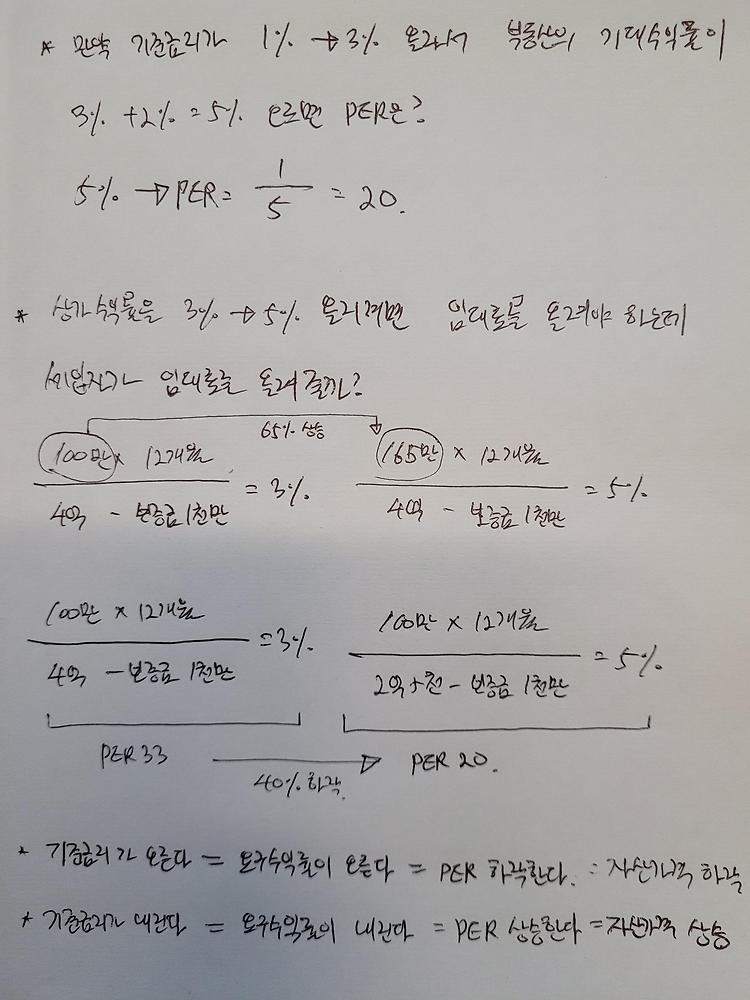 * 만약 기준금리가 1% → 3% 올라서 부동산의 기대수익률이
3% + 2% = 5% 오르면 PER은?
5% → PER = 1/5 = 20.
* 상가수익률을 3% → 5% 올리려면 임대료를 올려야 하는데
세입자가 임대료를 올려 줄까?
65% 상승
100만 × 12개월 / 4억 - 보증금 1천만 = 3%
165만 × 12개월 / 4억 - 보증금 1천만 = 5%
100만 × 12개월 / 4억 - 보증금 1천만 = 3%
100만 × 12개월 / 2억 5천 - 보증금 1천만 = 5%
PER 33 → PER 20.
40% 하락
* 기준금리가 오른다 = 요구수익률이 오른다 = PER 하락한다. = 자산가격 하락
* 기준금리가 내린다 = 요구수익률이 내린다 = PER 상승한다 = 자산가격 상승